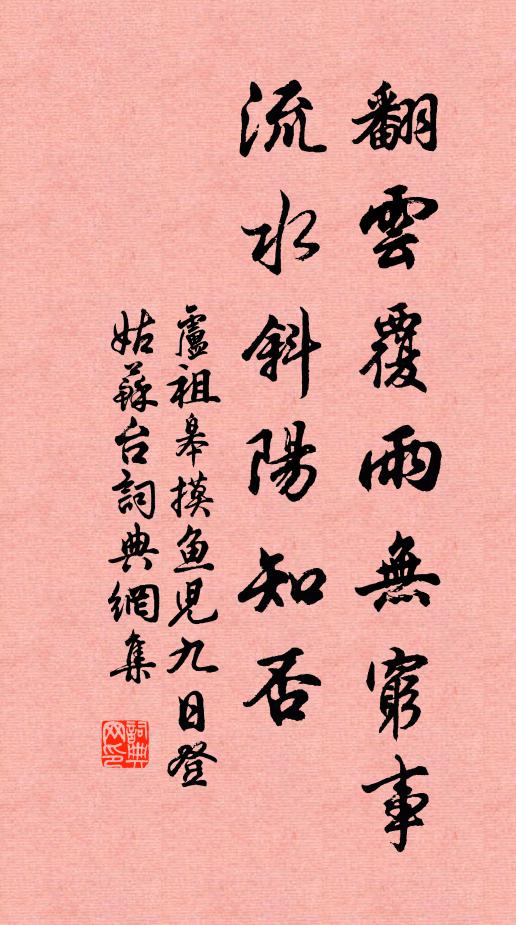 翻雲覆雨無窮事
流水斜陽知否
盧祖皋摸鱼児九日登
姑蘇台詞典網集
詞典
网印